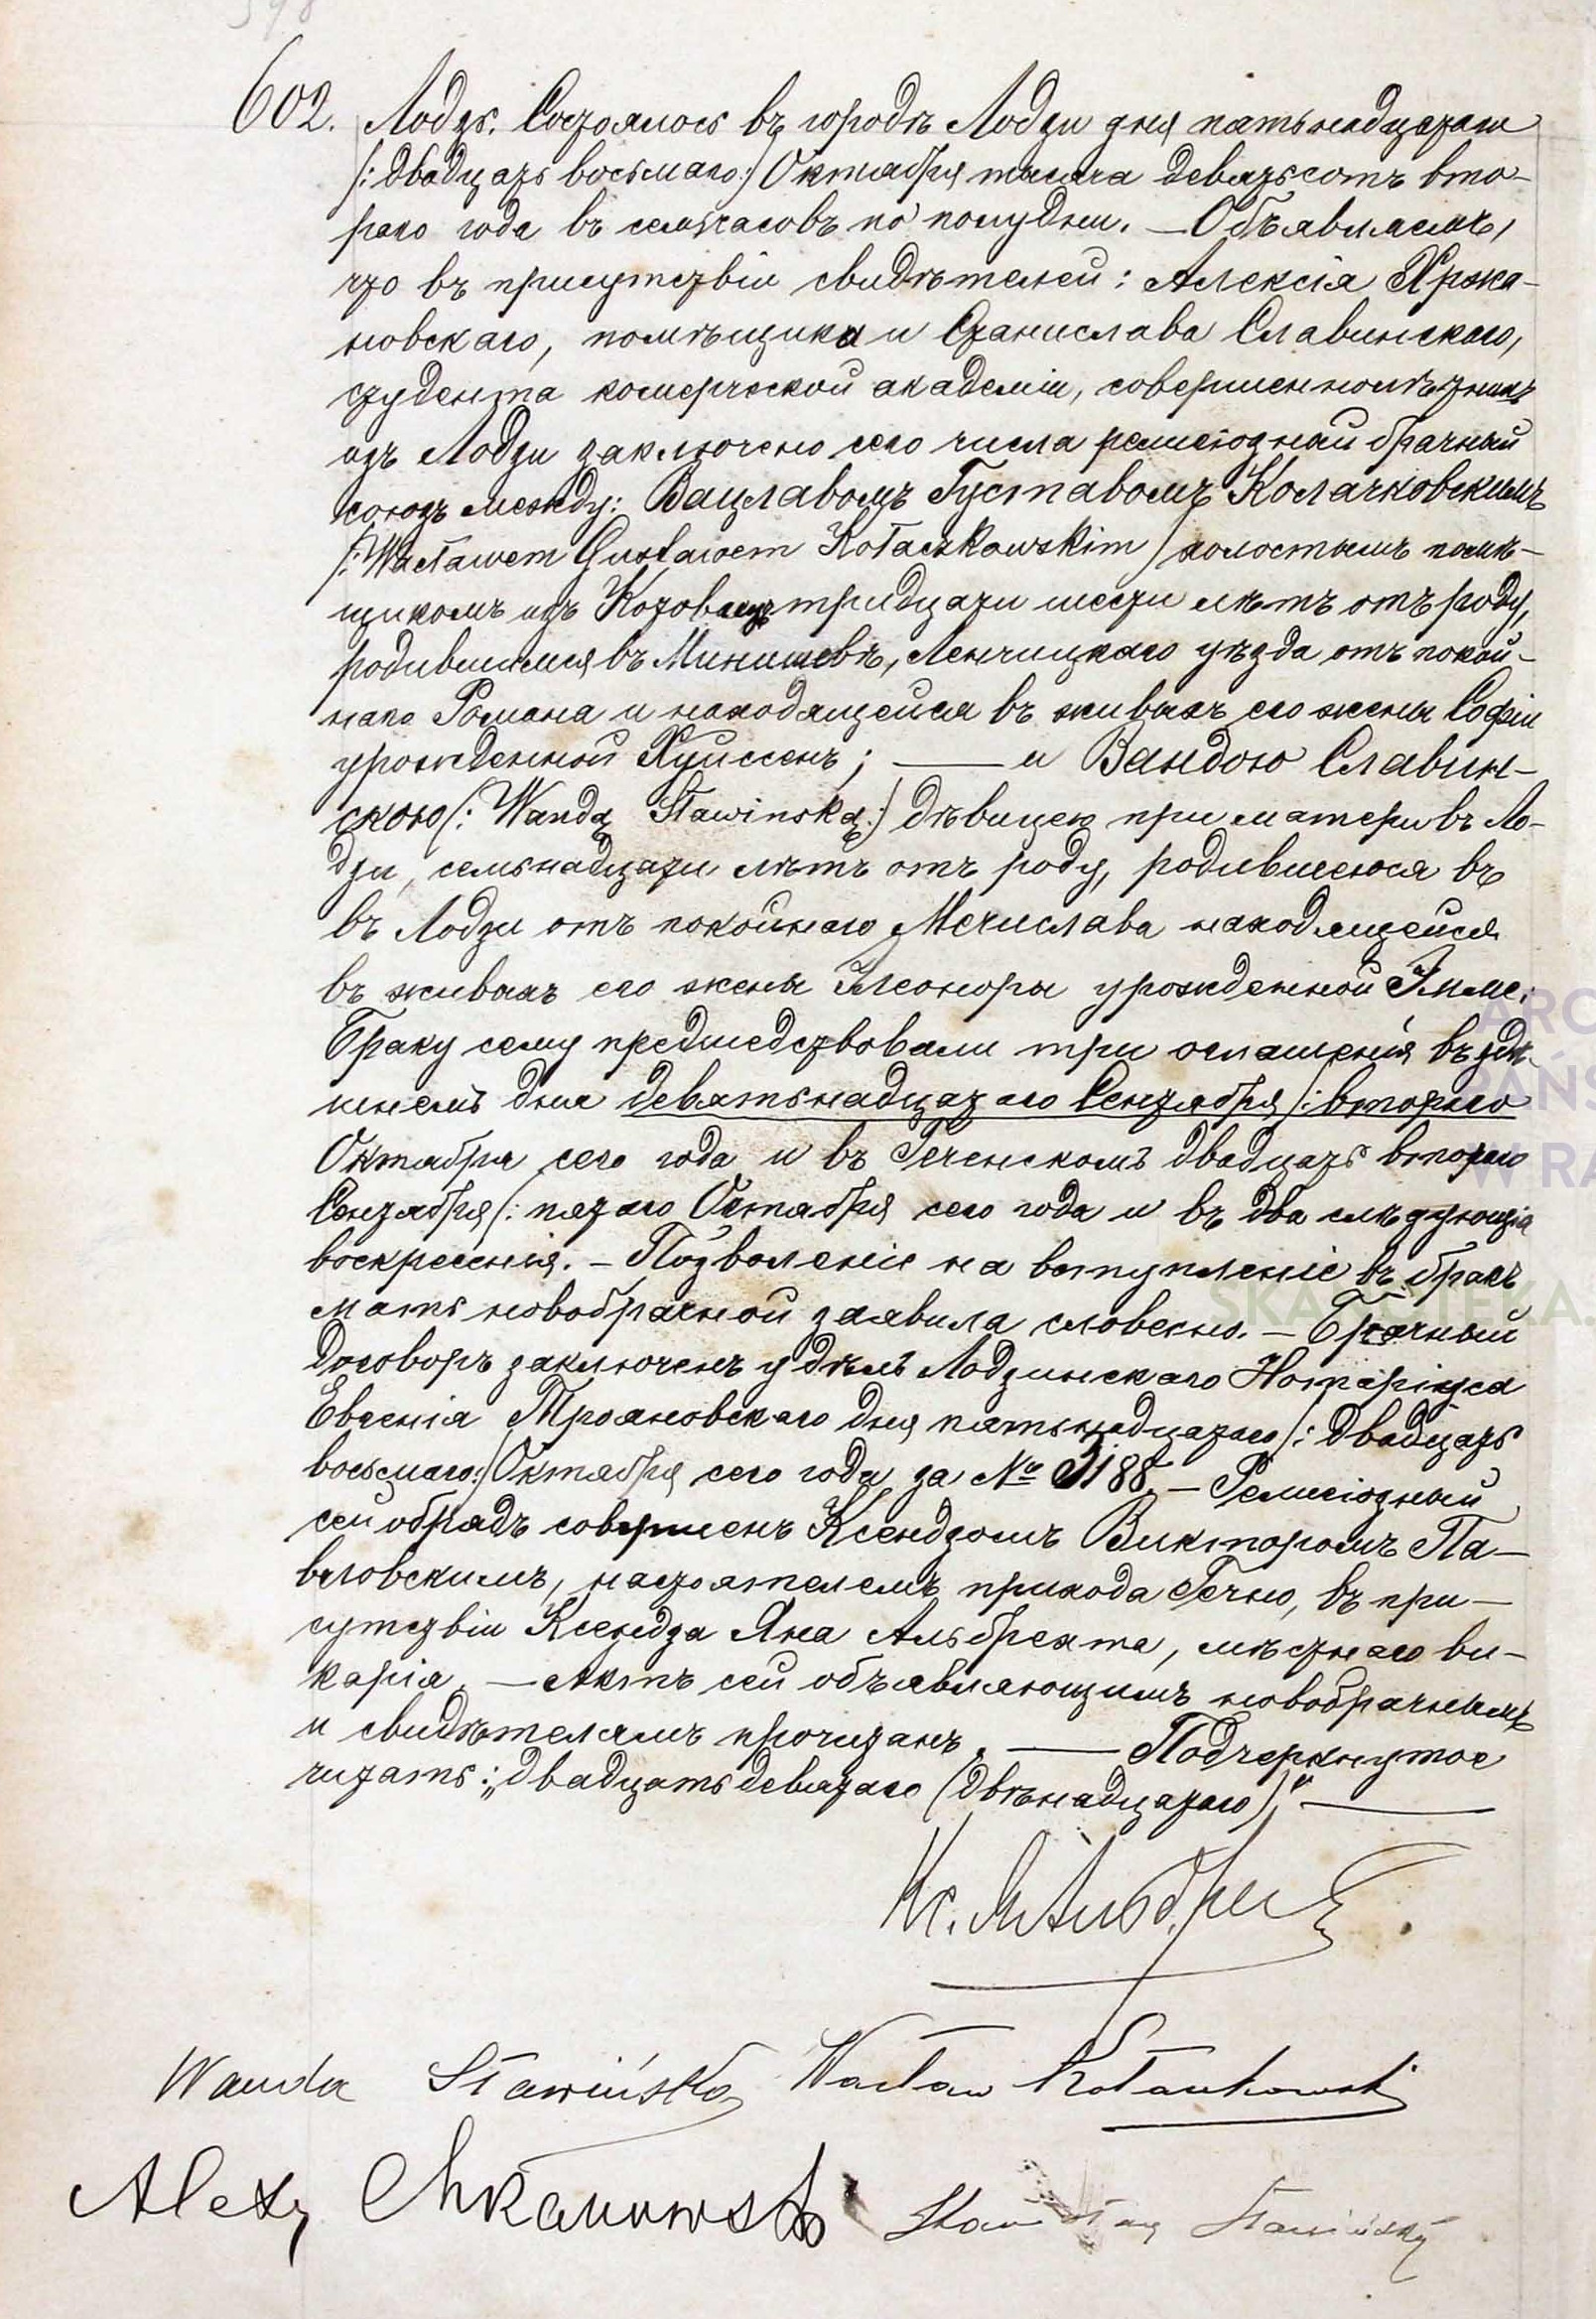 602. Лодзь. Состоялось въ городѣ Лодзи дня пятьнадцатаго
/: двадцать восьмаго:/ Октября тысяча девятьсотъ вто-
раго года въ семь часовъ по полудни. — Объявляемъ,
что въ присутствіи свидѣтелей: Алексія Хржа-
новскаго, помѣщика и Станислава Славинскаго,
студента комерческой академіи, совершеннолѣтнихъ
изъ Лодзи заключено сего числа религіозный брачный
союзъ между: Вацлавомъ Густавомъ Колачковскимъ
/: Wacławem Gustawem Kołaczkowskim / холостымъ помѣ-
щикомъ изъ тридцати шести лѣтъ отъ роду,
родившимся въ Ленчицкаго уѣзда отъ покой-
наго Романа и находящейся въ живыхъ его жены Софіи
урожденной Хуиссенъ; — и Вандою Славин-
скою /: Wandą Sławinską:/ дѣвицею при матери въ Ло-
дзи, семьнадцати лѣтъ отъ роду, родившеюся въ
въ Лодзи отъ покойнаго Мечислава находящейся
въ живыхъ его жены Элеоноры урожденной
Браку сему предшедствовали три оглашенія въ здѣ-
шнемъ дня девятьнадцатаго Сентября /: втораго
Октября сего года и въ Геченскомъ двадцать втораго
Сентября /: пятаго Октября сего года и въ два слѣдующія
воскресенія. — Позволеніе на вступленіе въ бракъ
мать новобрачной заявила словесно. — Брачный
договоръ заключенъ у дѣлъ Лодзинскаго Нотаріуса
Евгенія Трояновскаго дня пятьнадцатаго /: двадцать
восьмаго:/ Октября сего года за № 3188. — Религіозный
сей обрядъ совершенъ Ксендзомъ Викторомъ Па-
вловскимъ, настоятелемъ прихода Гечно, въ при-
сутствіи Ксендза Яна Альбрехта, мѣстнаго ви-
карія. — Актъ сей объявляющимъ новобрачнымъ
и свидѣтелямъ прочитанъ. — Подчеркнутое
читать: „двадцать девятаго (двѣнадцатаго)" —
Кс. Я Альбрехт
Wanda Sławińska Wacław Kołaczkowski
Alexy Chrzanowski Stanisław Sławiński